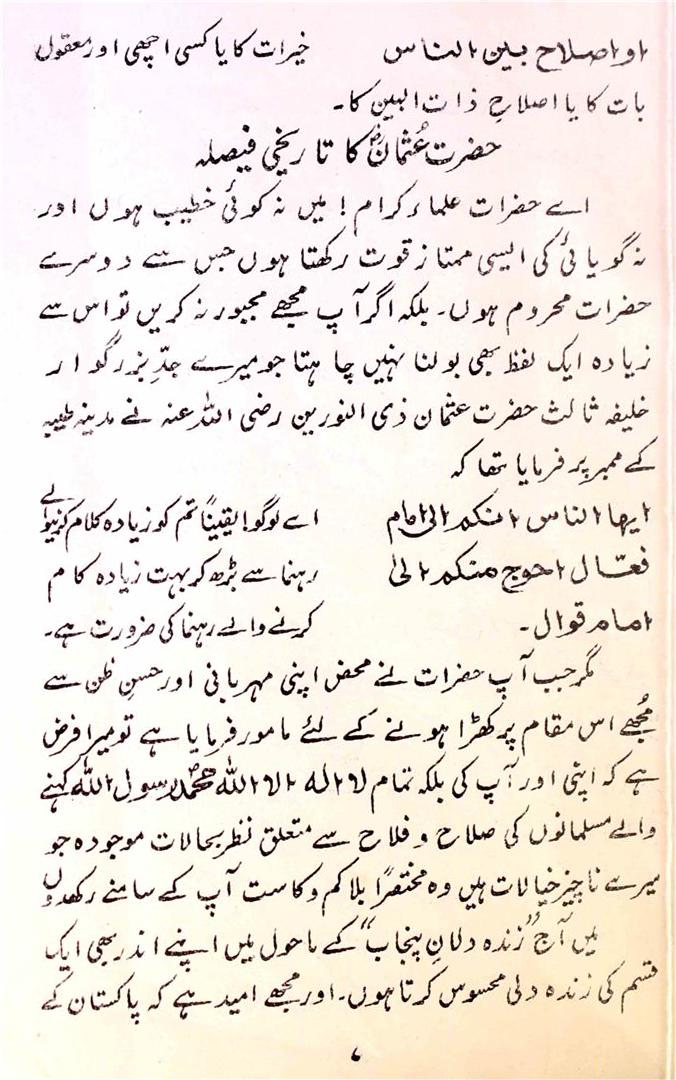 او اصلاح بین الناس خیرات کا یا کسی اچھی اور معقول
بات کا یا اصلاحِ ذات البین کا۔
حضرت عُثمانؓ کا تاریخی فیصلہ
اے حضرات علماء کرام! میں نہ کوئی خطیب ہوں اور
نہ گویائی کی ایسی ممتاز قوت رکھتا ہوں جس سے دوسرے
حضرات محروم ہوں۔ بلکہ اگر آپ مجھے مجبور نہ کریں تو اس سے
زیادہ ایک لفظ بھی بولنا نہیں چاہتا جو میرے جدِّ بزرگوار
خلیفہ ثالث حضرت عثمان ذی النورین رضی اللہ عنہ نے مدینہ طیبہ
کے ممبر پر فرمایا تھا کہ
ایھا الناس انکم الی امام اے لوگو! یقیناً تم کو زیادہ کلام کرنیوالے
فعّال احوج منکم الیٰ رہنما سے بڑھ کر بہت زیادہ کام
امام قوال۔ کرنے والے رہنما کی ضرورت ہے۔
مگر جب آپ حضرات نے محض اپنی مہربانی اور حسنِ ظن سے
مُجھے اس مقام پر کھڑا ہونے کے لئے مامور فرمایا ہے تو میرا فرض
ہے کہ اپنی اور آپ کی بلکہ تمام لا الہ الا اللہ محمد رسول اللہ کہنے
والے مسلمانوں کی صلاح و فلاح سے متعلق نظر بحالات موجودہ جو
میرے ناچیز خیالات ہیں وہ مختصراً بلا کم و کاست آپ کے سامنے رکھدوں
میں آج ”زندہ دلانِ پنجاب“ کے ماحول میں اپنے اندر بھی ایک
قسم کی زندہ دلی محسوس کرتا ہوں۔ اور مجھے امید ہے کہ پاکستان کے